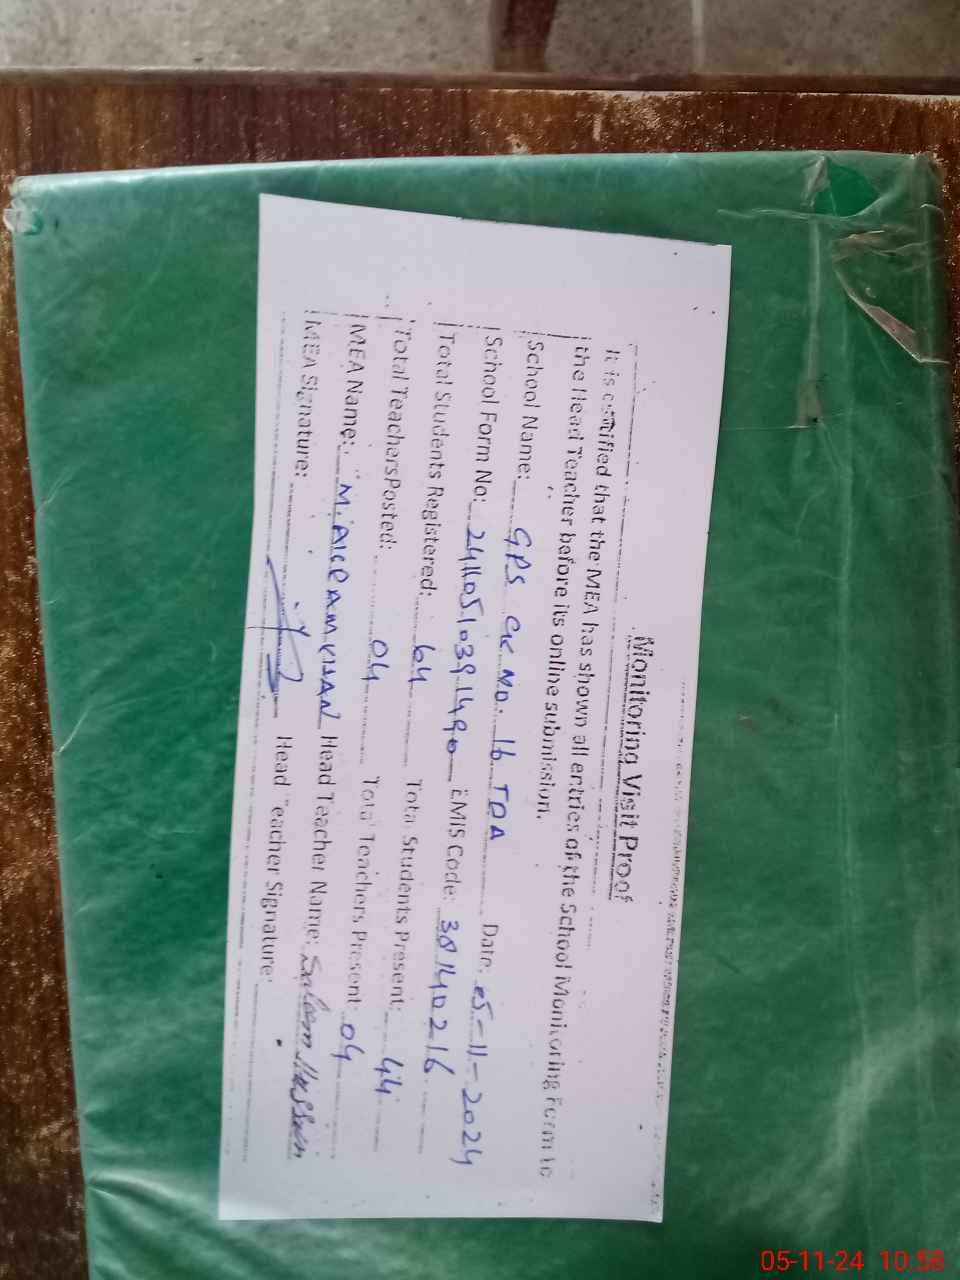 Monitoring Visit Proof
It is certified that the MEA has shown all entries of the School Monitoring Form to
the Head Teacher before its online submission.
School Name: GPS CK NO. 16 TDA Date: 05-11-2024
School Form No: EMIS Code:
Total Students Registered: 64 Total Students Present: 44
Total Teachers Posted: 04 Total Teachers Present: 04
MEA Name: M. AKRAM KHAN Head Teacher Name: Saleem Hussain
MEA Signature: Head Teacher Signature:
05-11-24 10:58